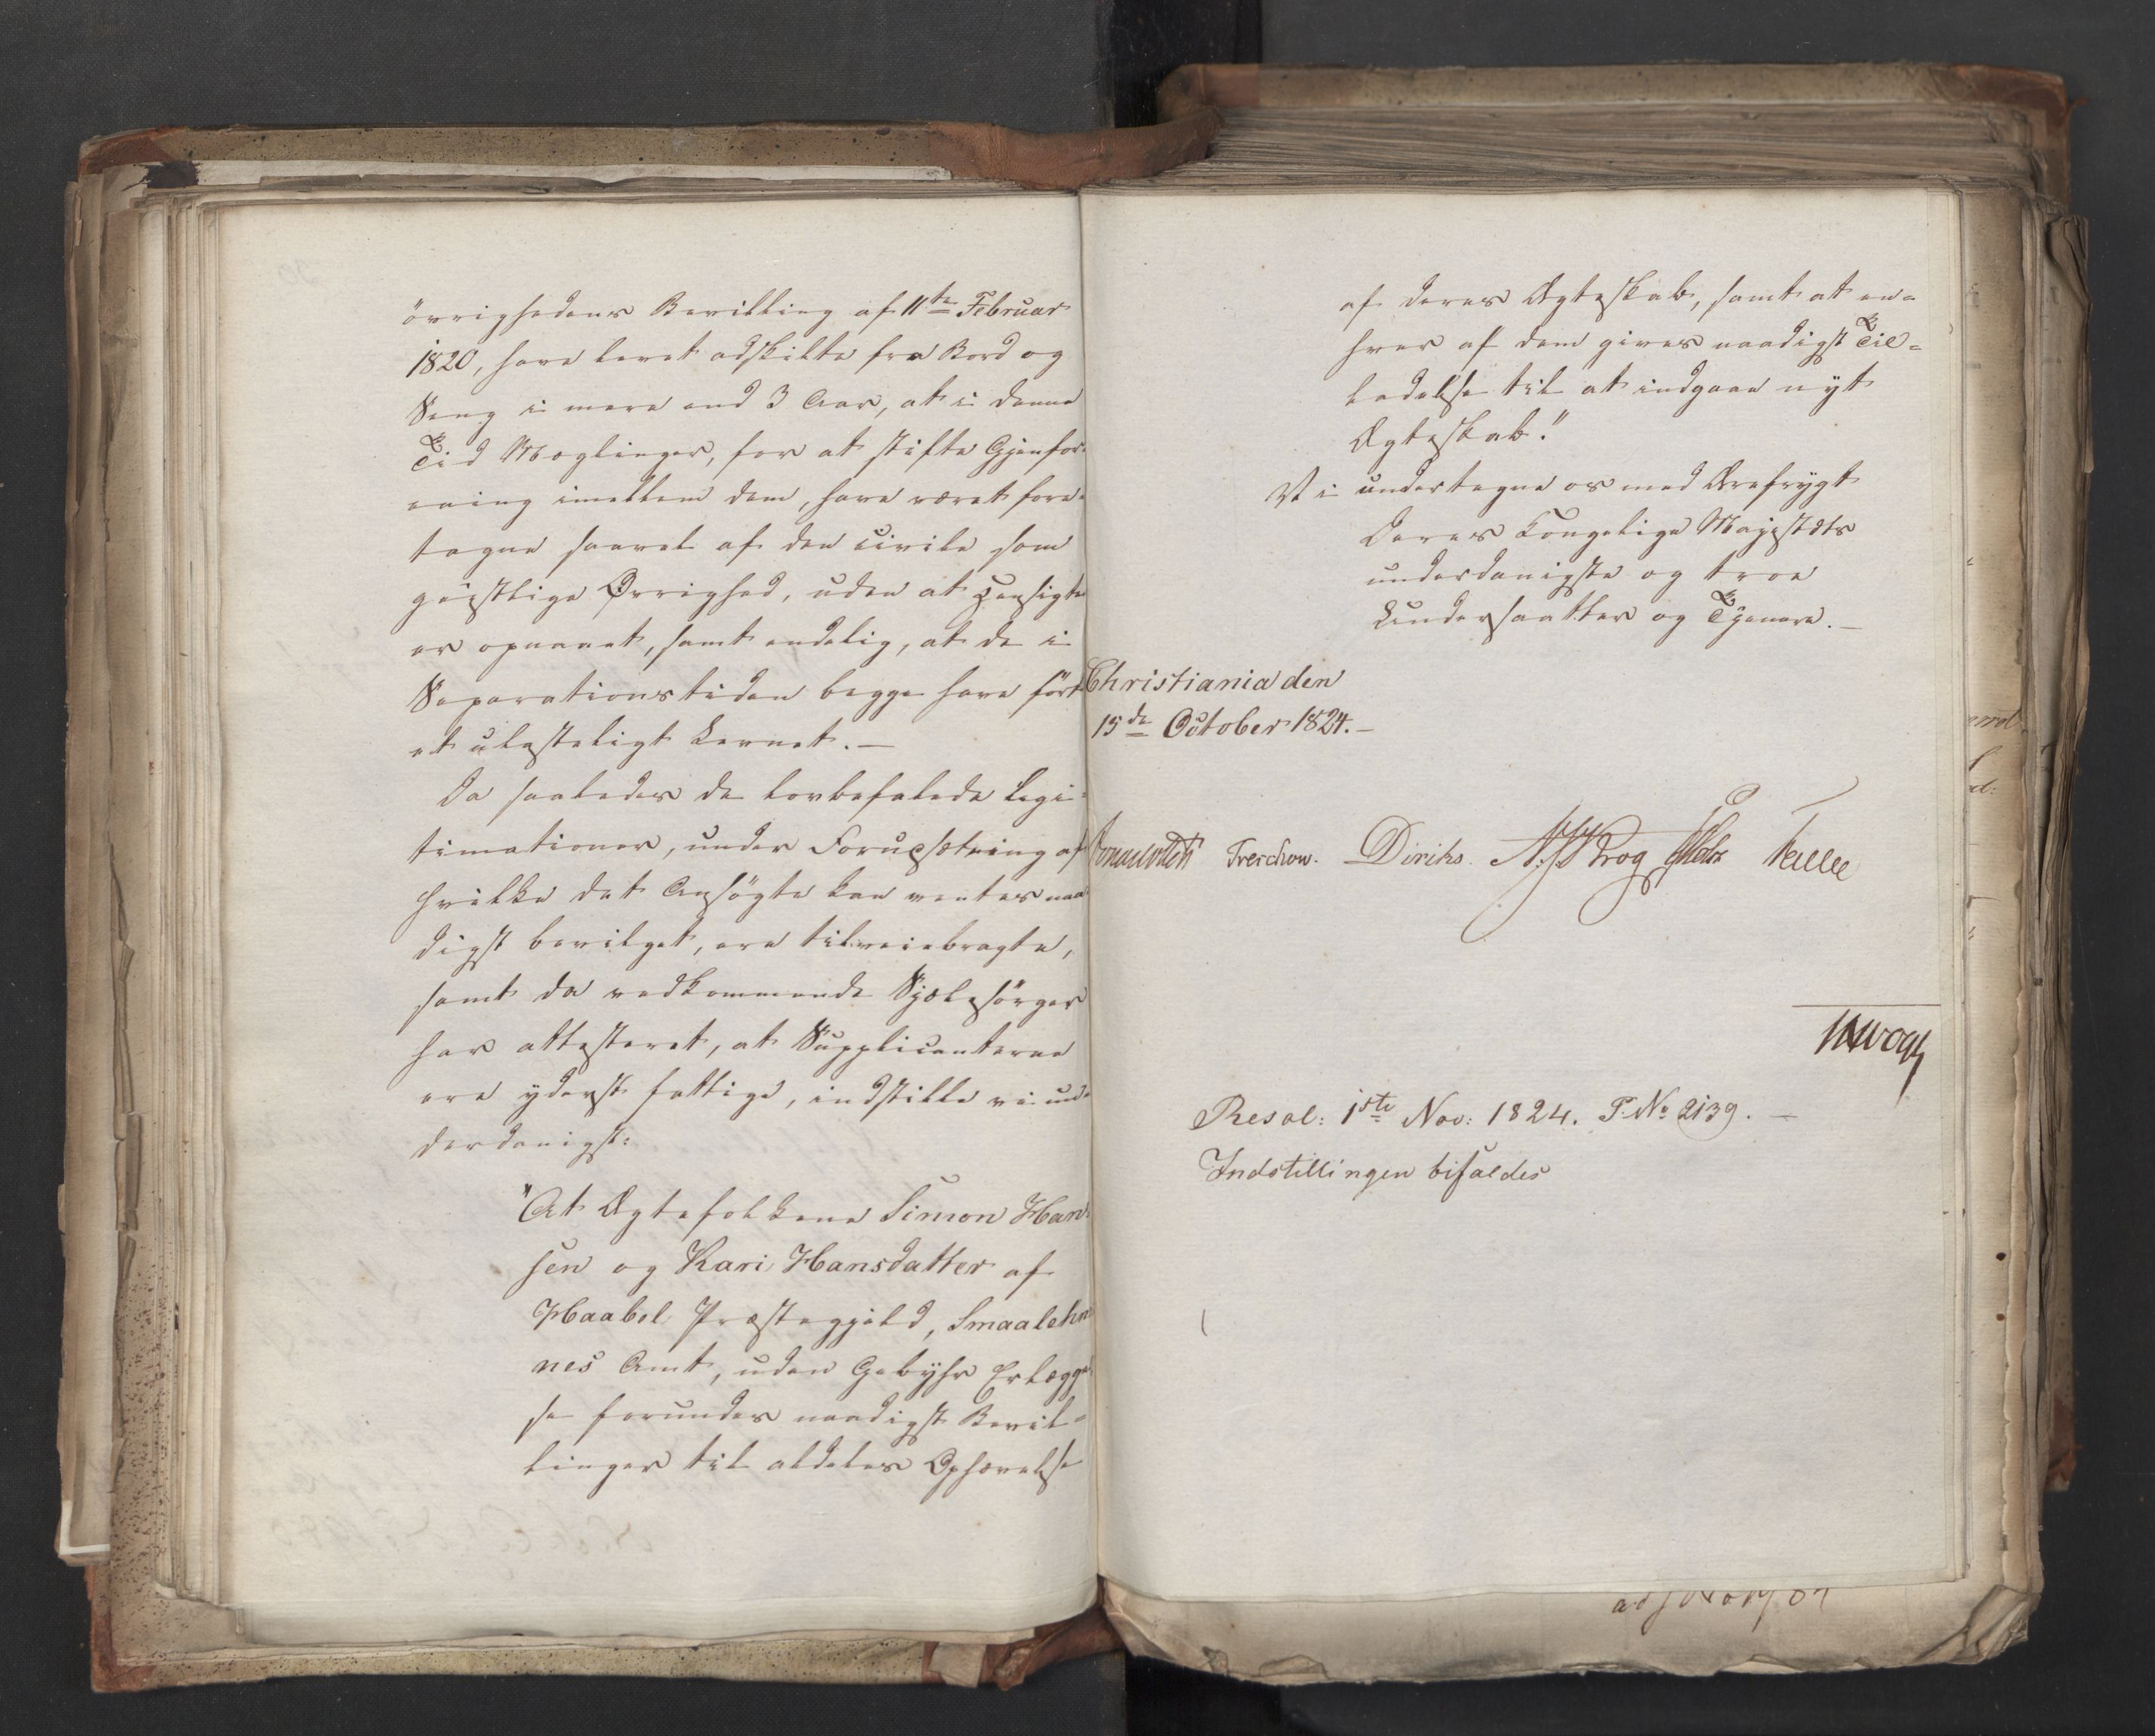 övrighedens Bevilling af 11te Februar
1820, have levet adskilte fra Bord og
Seng i mere end 3 Aar, at i denne
Tid Mæglinger, for at stifte Gjenfor-
ening imellem dem, have været fore-
tagne saavel af den civile som
geistlige Øvrighed, uden at Hensigten
er opnaaet, samt endelig, at de i
Separationstiden begge have ført
et ulasteligt Levnet. —
Da saaledes de lovbefalede Legi-
timationer, under Forudsætning af
hvilke det Ansøgte kan ventes naa-
digst bevilget, ere tilveiebragte,
samt da vedkommende Sjælesørger
har attesteret, at Supplicanterne
ere yderst fattige, indstille vi un-
derdanigst:
"At Ægtefolkene Simon Han-
sen og Kari Hansdatter af
Haabøl Præstegjeld, Smaalehn-
nes Amt, uden Gebyhr Erlæggel-
se forundes naadigst Bevil-
linger til aldeles Ophævelse
af deres Ægteskab, samt at en-
hver af dem gives naadigst Til-
ladelse til at indgaae nyt
Ægteskab."
Vi undertegne os med Ærefrygt
Deres Kongelige Majestæts
underdanigste og troe
Undersaatter og Tjenere. —
Christiania den
15de October 1824. —
Sommerhielm Treschow. Diriks. Krog Holst Fasting
JHVogt
Resol: 1ste Nov: 1824. P. No 2139. —
Indstillingen bifaldes